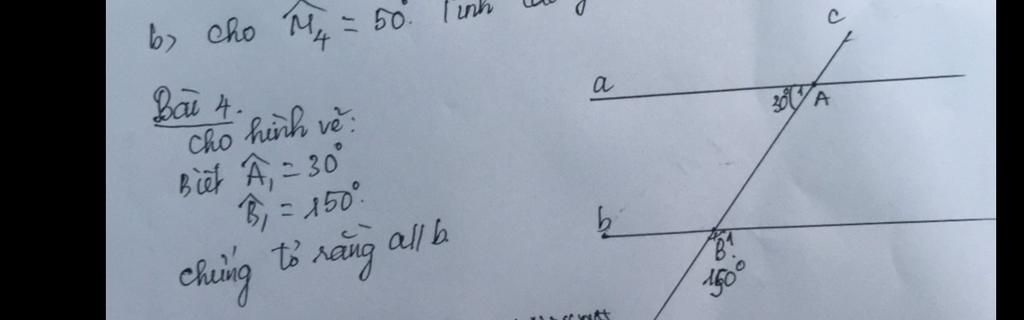 b) cho M̂₄ = 50°. Tính
Bài 4.
cho hình vẽ:
Biết Â₁ = 30°
B̂₁ = 150°.
chứng tỏ rằng a // b.
c
a
30° 1
A
b
1
B
150°